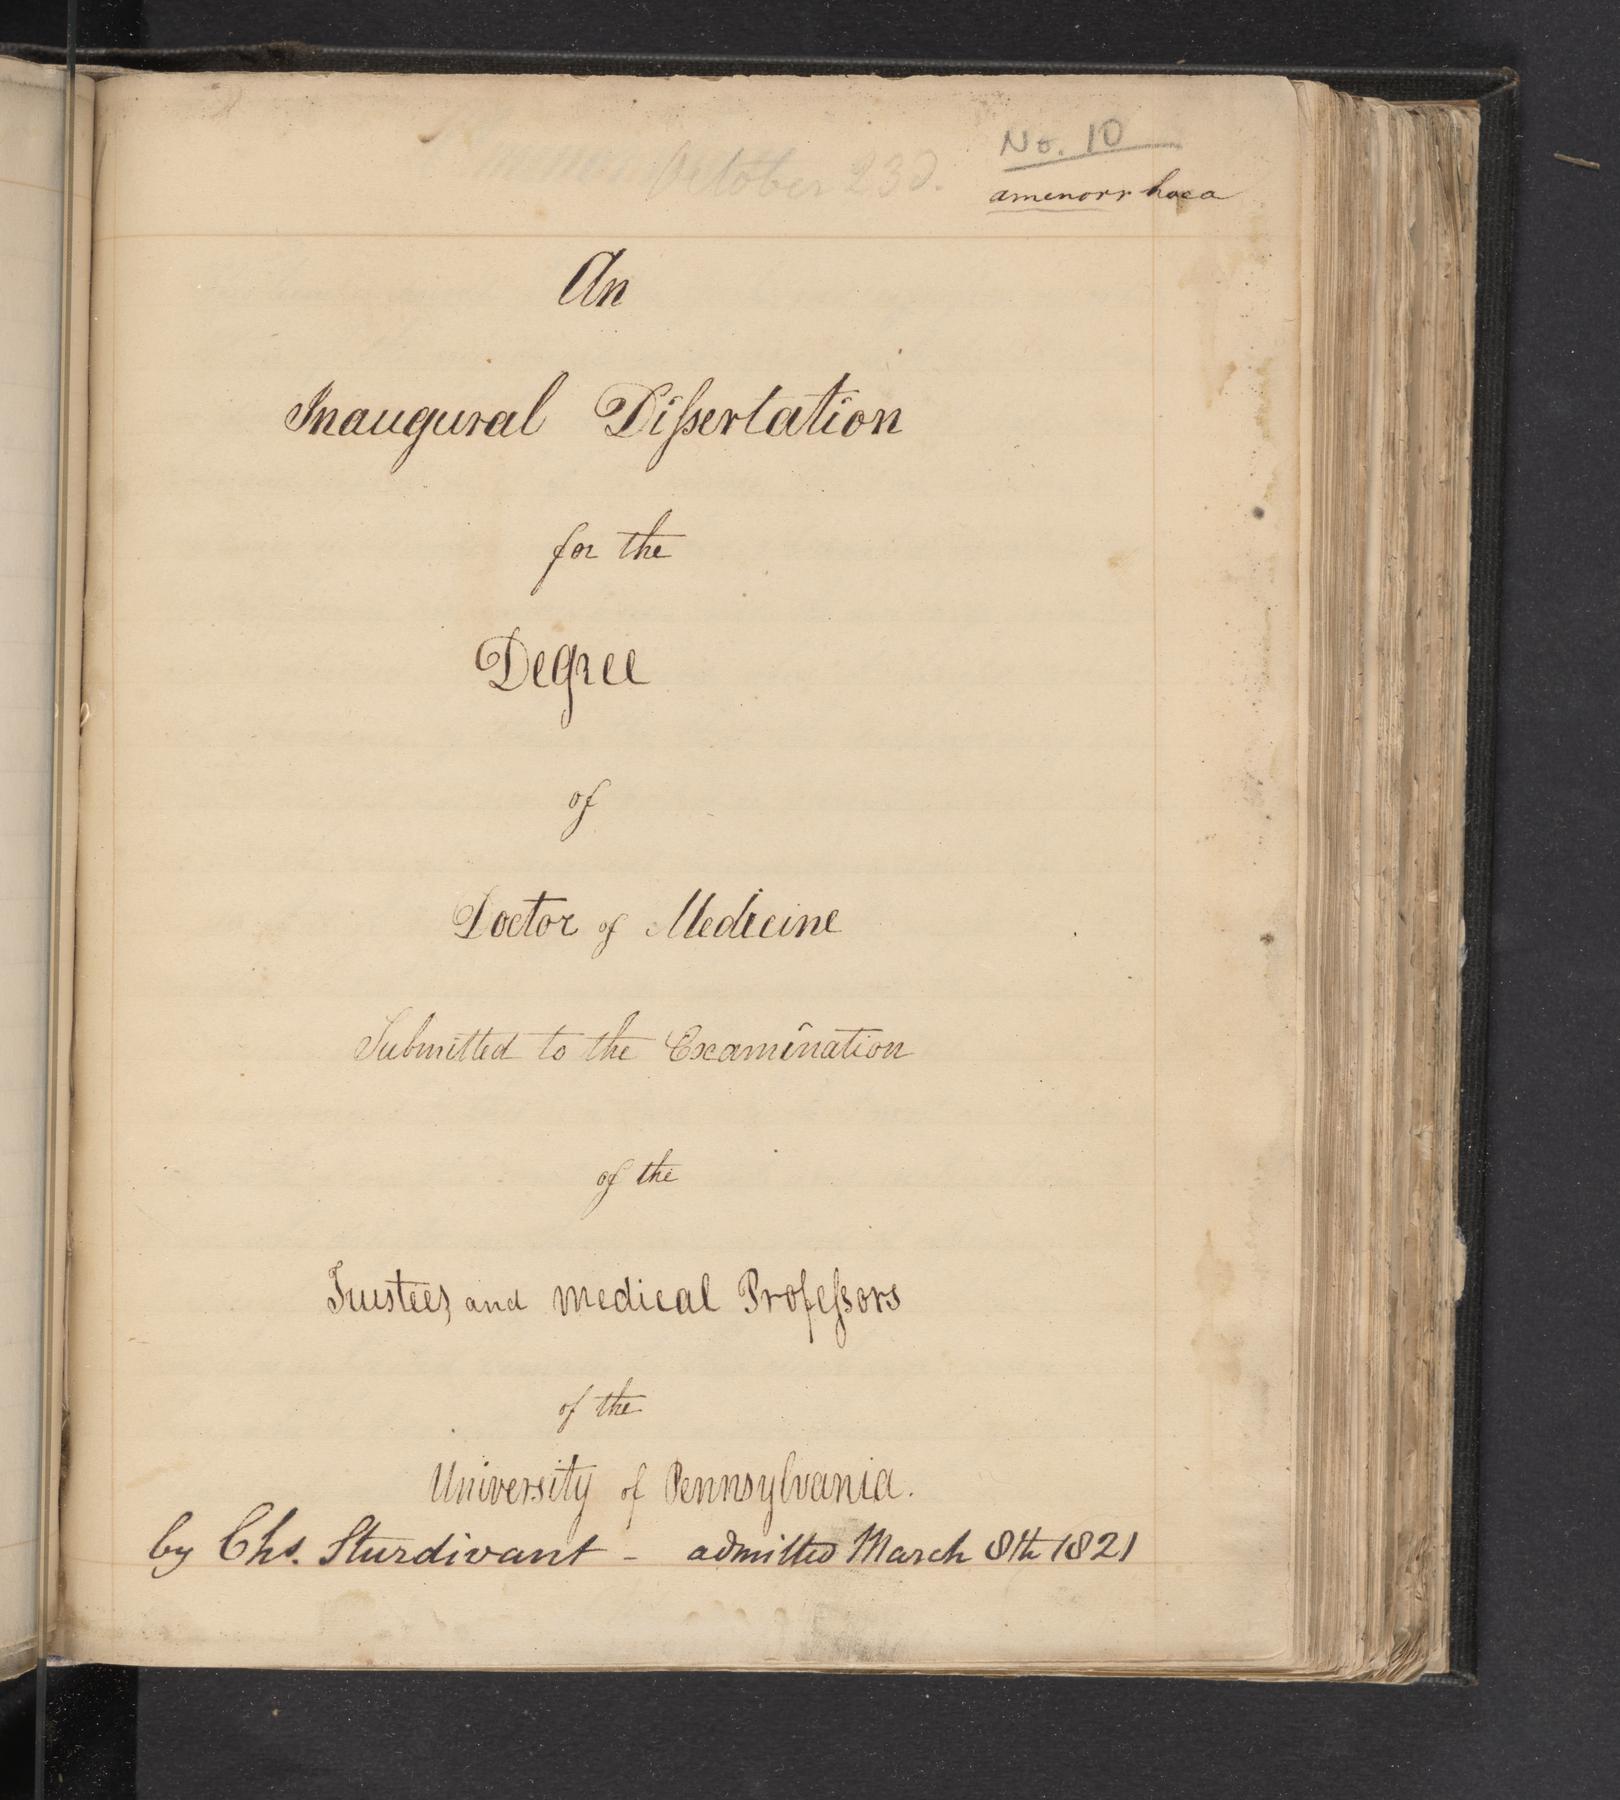 October 23d.
No. 10
amenorrhoea
An
Inaugural Dissertation
for the
Degree
of
Doctor of Medicine
Submitted to the Examination
of the
Trustees and medical Professors
of the
University of Pennsylvania.
by Chs. Sturdivant - admitted March 8th 1821